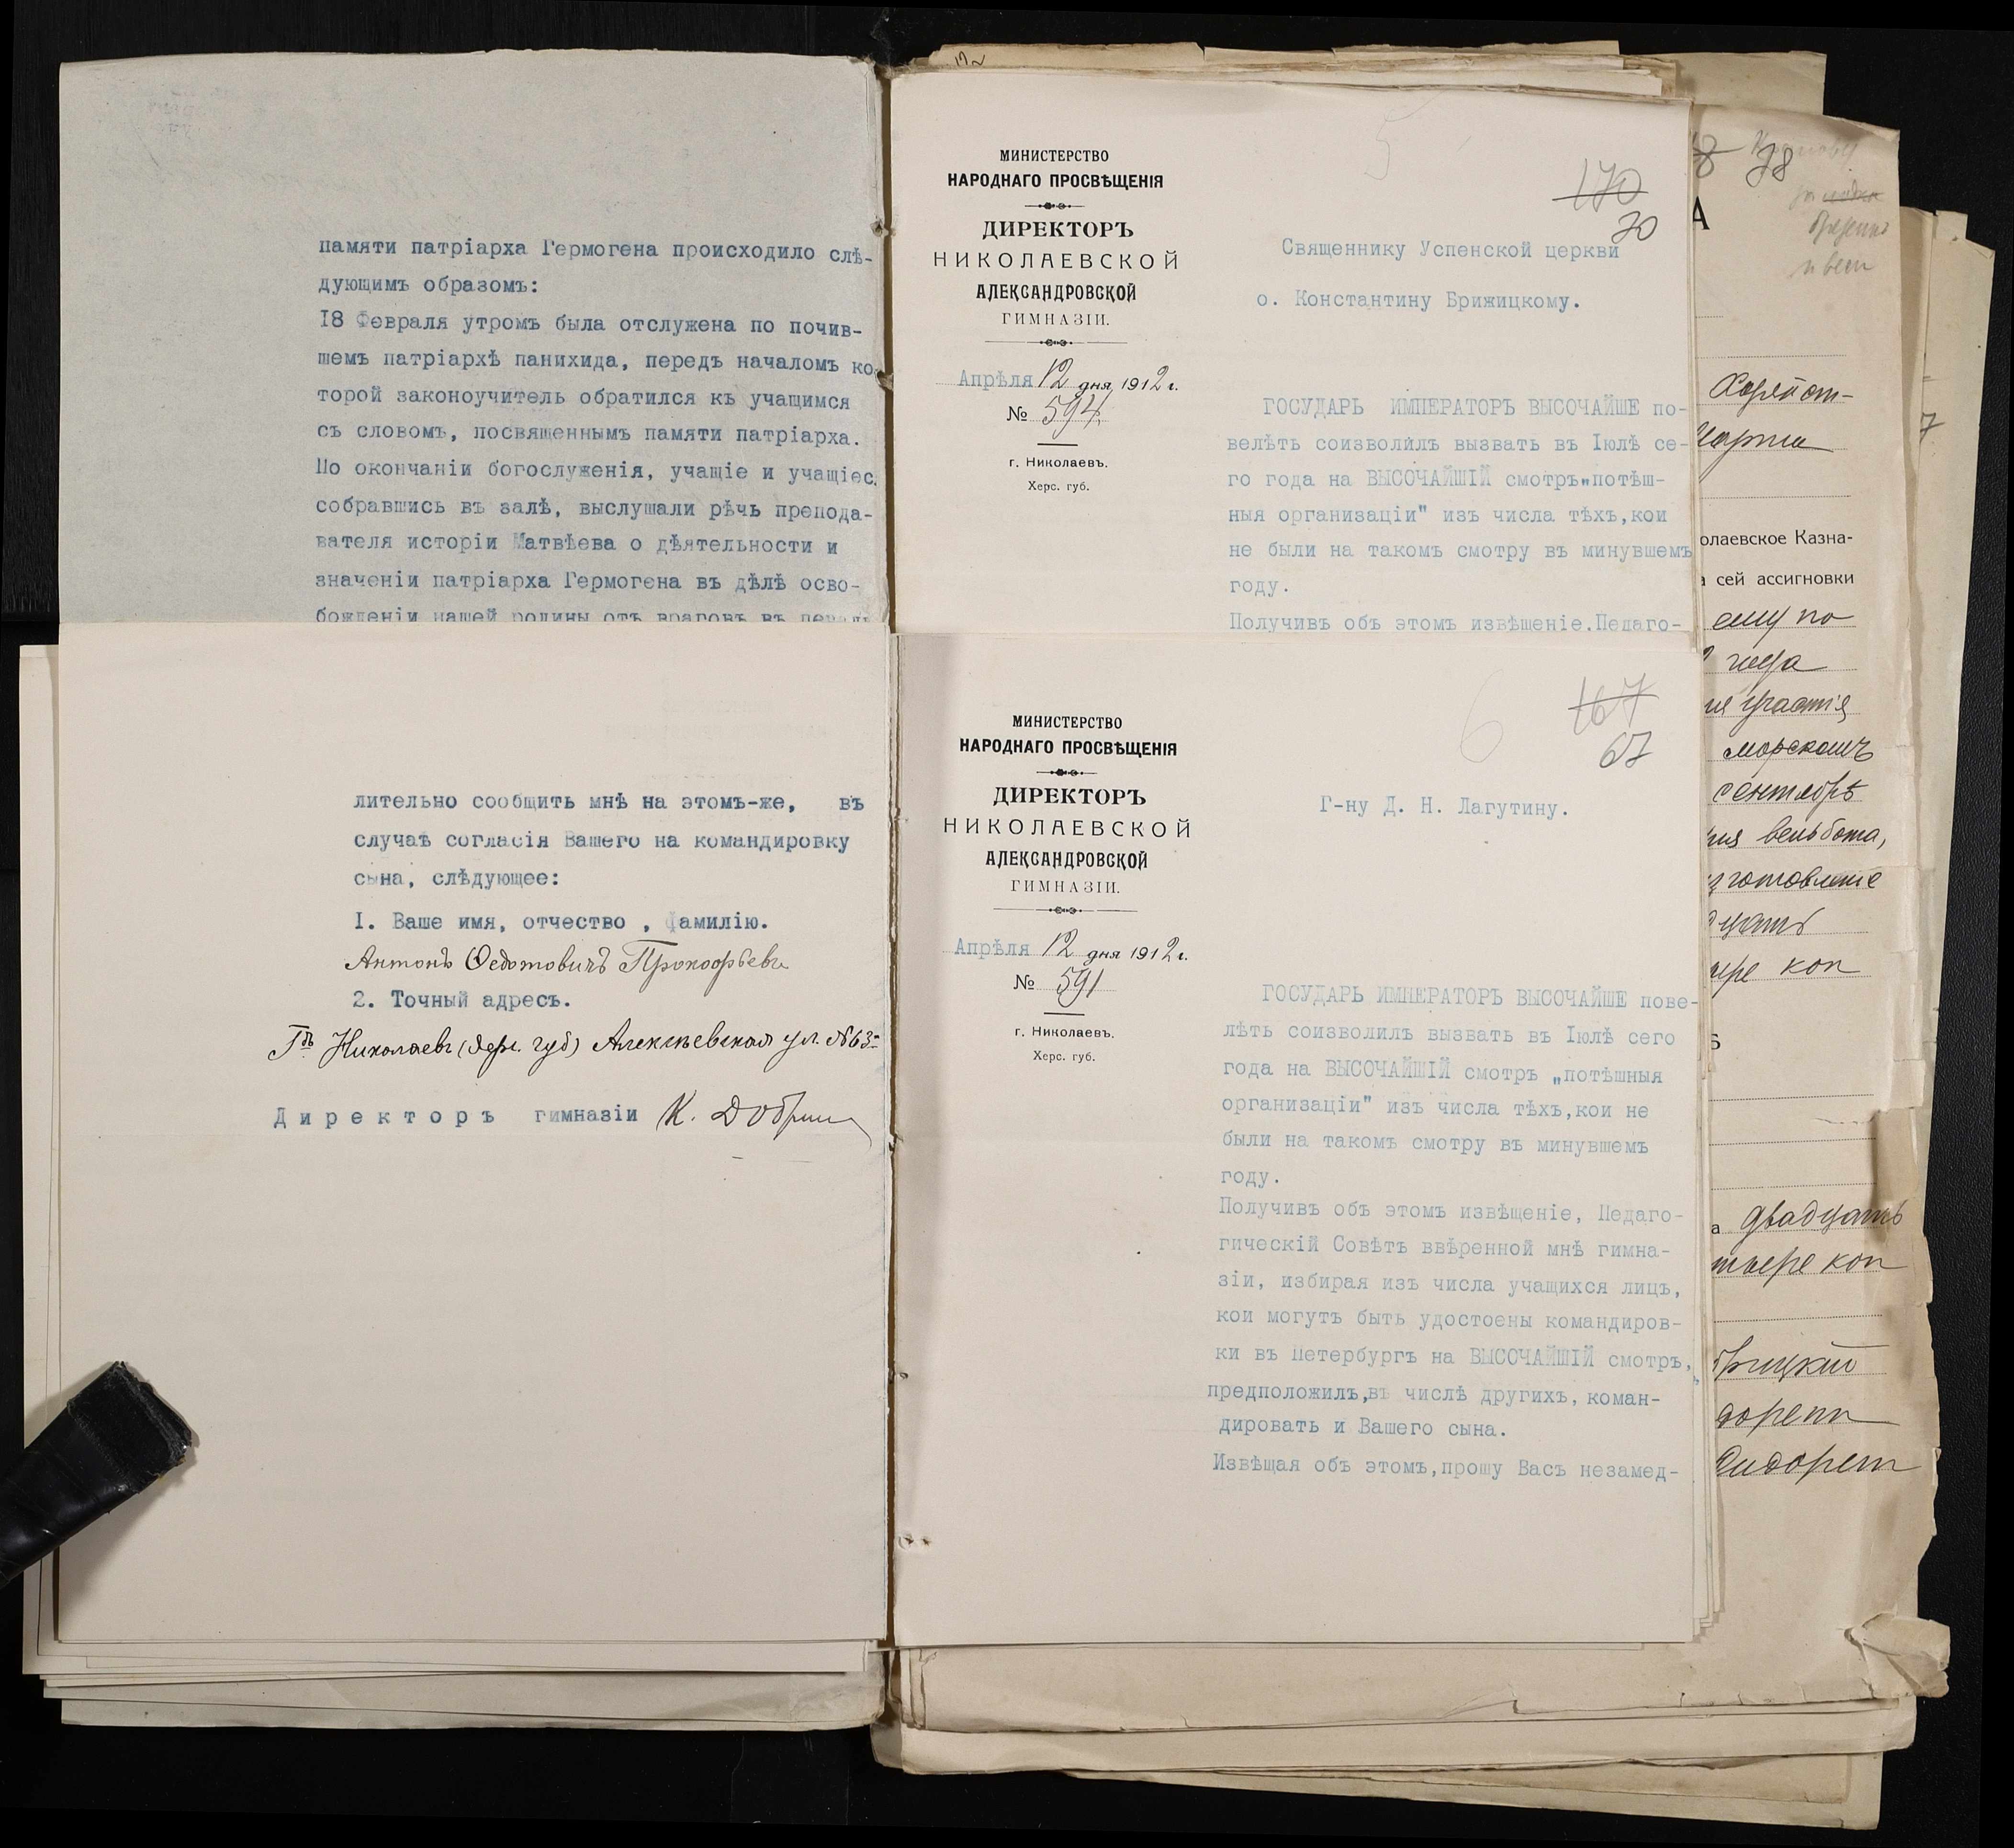 памяти патріарха Гермогена происходило слѣ-
дующимъ образомъ:
I8 Февраля утромъ была отслужена по почив-
шемъ патріархѣ панихида, передъ началомъ ко
торой законоучитель обратился къ учащимся
съ словомъ, посвященнымъ памяти патріарха.
По окончаніи богослуженія, учащіе и учащіес
собравшись въ залѣ, выслушали рѣчь препода-
вателя исторіи Матвѣева о дѣятельности и
значеніи патріарха Гермогена въ дѣлѣ осво-
божденіи нашей родины отъ враговъ въ
лительно сообщить мнѣ на этомъ-же, въ
случаѣ согласія Вашего на командировку
сына, слѣдующее:
I. Ваше имя, отчество , фамилію.
Антонъ Ѳедотовичъ Прокофьевъ
2. Точный адресъ.
Гъ Николаевъ (Херс. губ) Алексѣевская ул. №63
Директоръ гимназіи К. Добрин
МИНИСТЕРСТВО
НАРОДНАГО ПРОСВѢЩЕНІЯ
ДИРЕКТОРЪ
НИКОЛАЕВСКОЙ
АЛЕКСАНДРОВСКОЙ
ГИМНАЗІИ.
Апрѣля 12 дня 1912 г.
№ 594
г. Николаевъ.
Херс. губ.
5
170
70
Священнику Успенской церкви
о. Константину Брижицкому.
ГОСУДАРЬ ИМПЕРАТОРЪ ВЫСОЧАЙШЕ по-
велѣть соизволилъ вызвать въ Іюлѣ се-
го года на ВЫСОЧАЙШІЙ смотръ„потѣш-
ныя организаціи" изъ числа тѣхъ,кои
не были на такомъ смотру въ минувшемъ
году.
Получивъ объ этомъ извѣщеніе.Педаго-
МИНИСТЕРСТВО
НАРОДНАГО ПРОСВѢЩЕНІЯ
ДИРЕКТОРЪ
НИКОЛАЕВСКОЙ
АЛЕКСАНДРОВСКОЙ
ГИМНАЗІИ.
Апрѣля 12 дня 1912 г.
№ 591
г. Николаевъ.
Херс. губ.
6
167
67
Г-ну Д. Н. Лагутину.
ГОСУДАРЬ ИМПЕРАТОРЪ ВЫСОЧАЙШЕ пове-
лѣть соизволилъ вызвать въ Іюлѣ сего
года на ВЫСОЧАЙШІЙ смотръ „потѣшныя
организаціи" изъ числа тѣхъ,кои не
были на такомъ смотру въ минувшемъ
году.
Получивъ объ этомъ извѣщеніе, Педаго-
гическій Совѣтъ ввѣренной мнѣ гимна-
зіи, избирая изъ числа учащихся лицъ,
кои могутъ быть удостоены командиров-
ки въ Петербургъ на ВЫСОЧАЙШІЙ смотръ,
предположилъ,въ числѣ другихъ, коман-
дировать и Вашего сына.
Извѣщая объ этомъ,прошу Васъ незамед-
78
А
марта
олаевское Казна-
а сей ассигновки
ему по
года
ия участія
морскомъ
сентябрѣ
ния вельбота,
изготовленіе
дцать
ыре коп
а двадцать
тыре коп
7